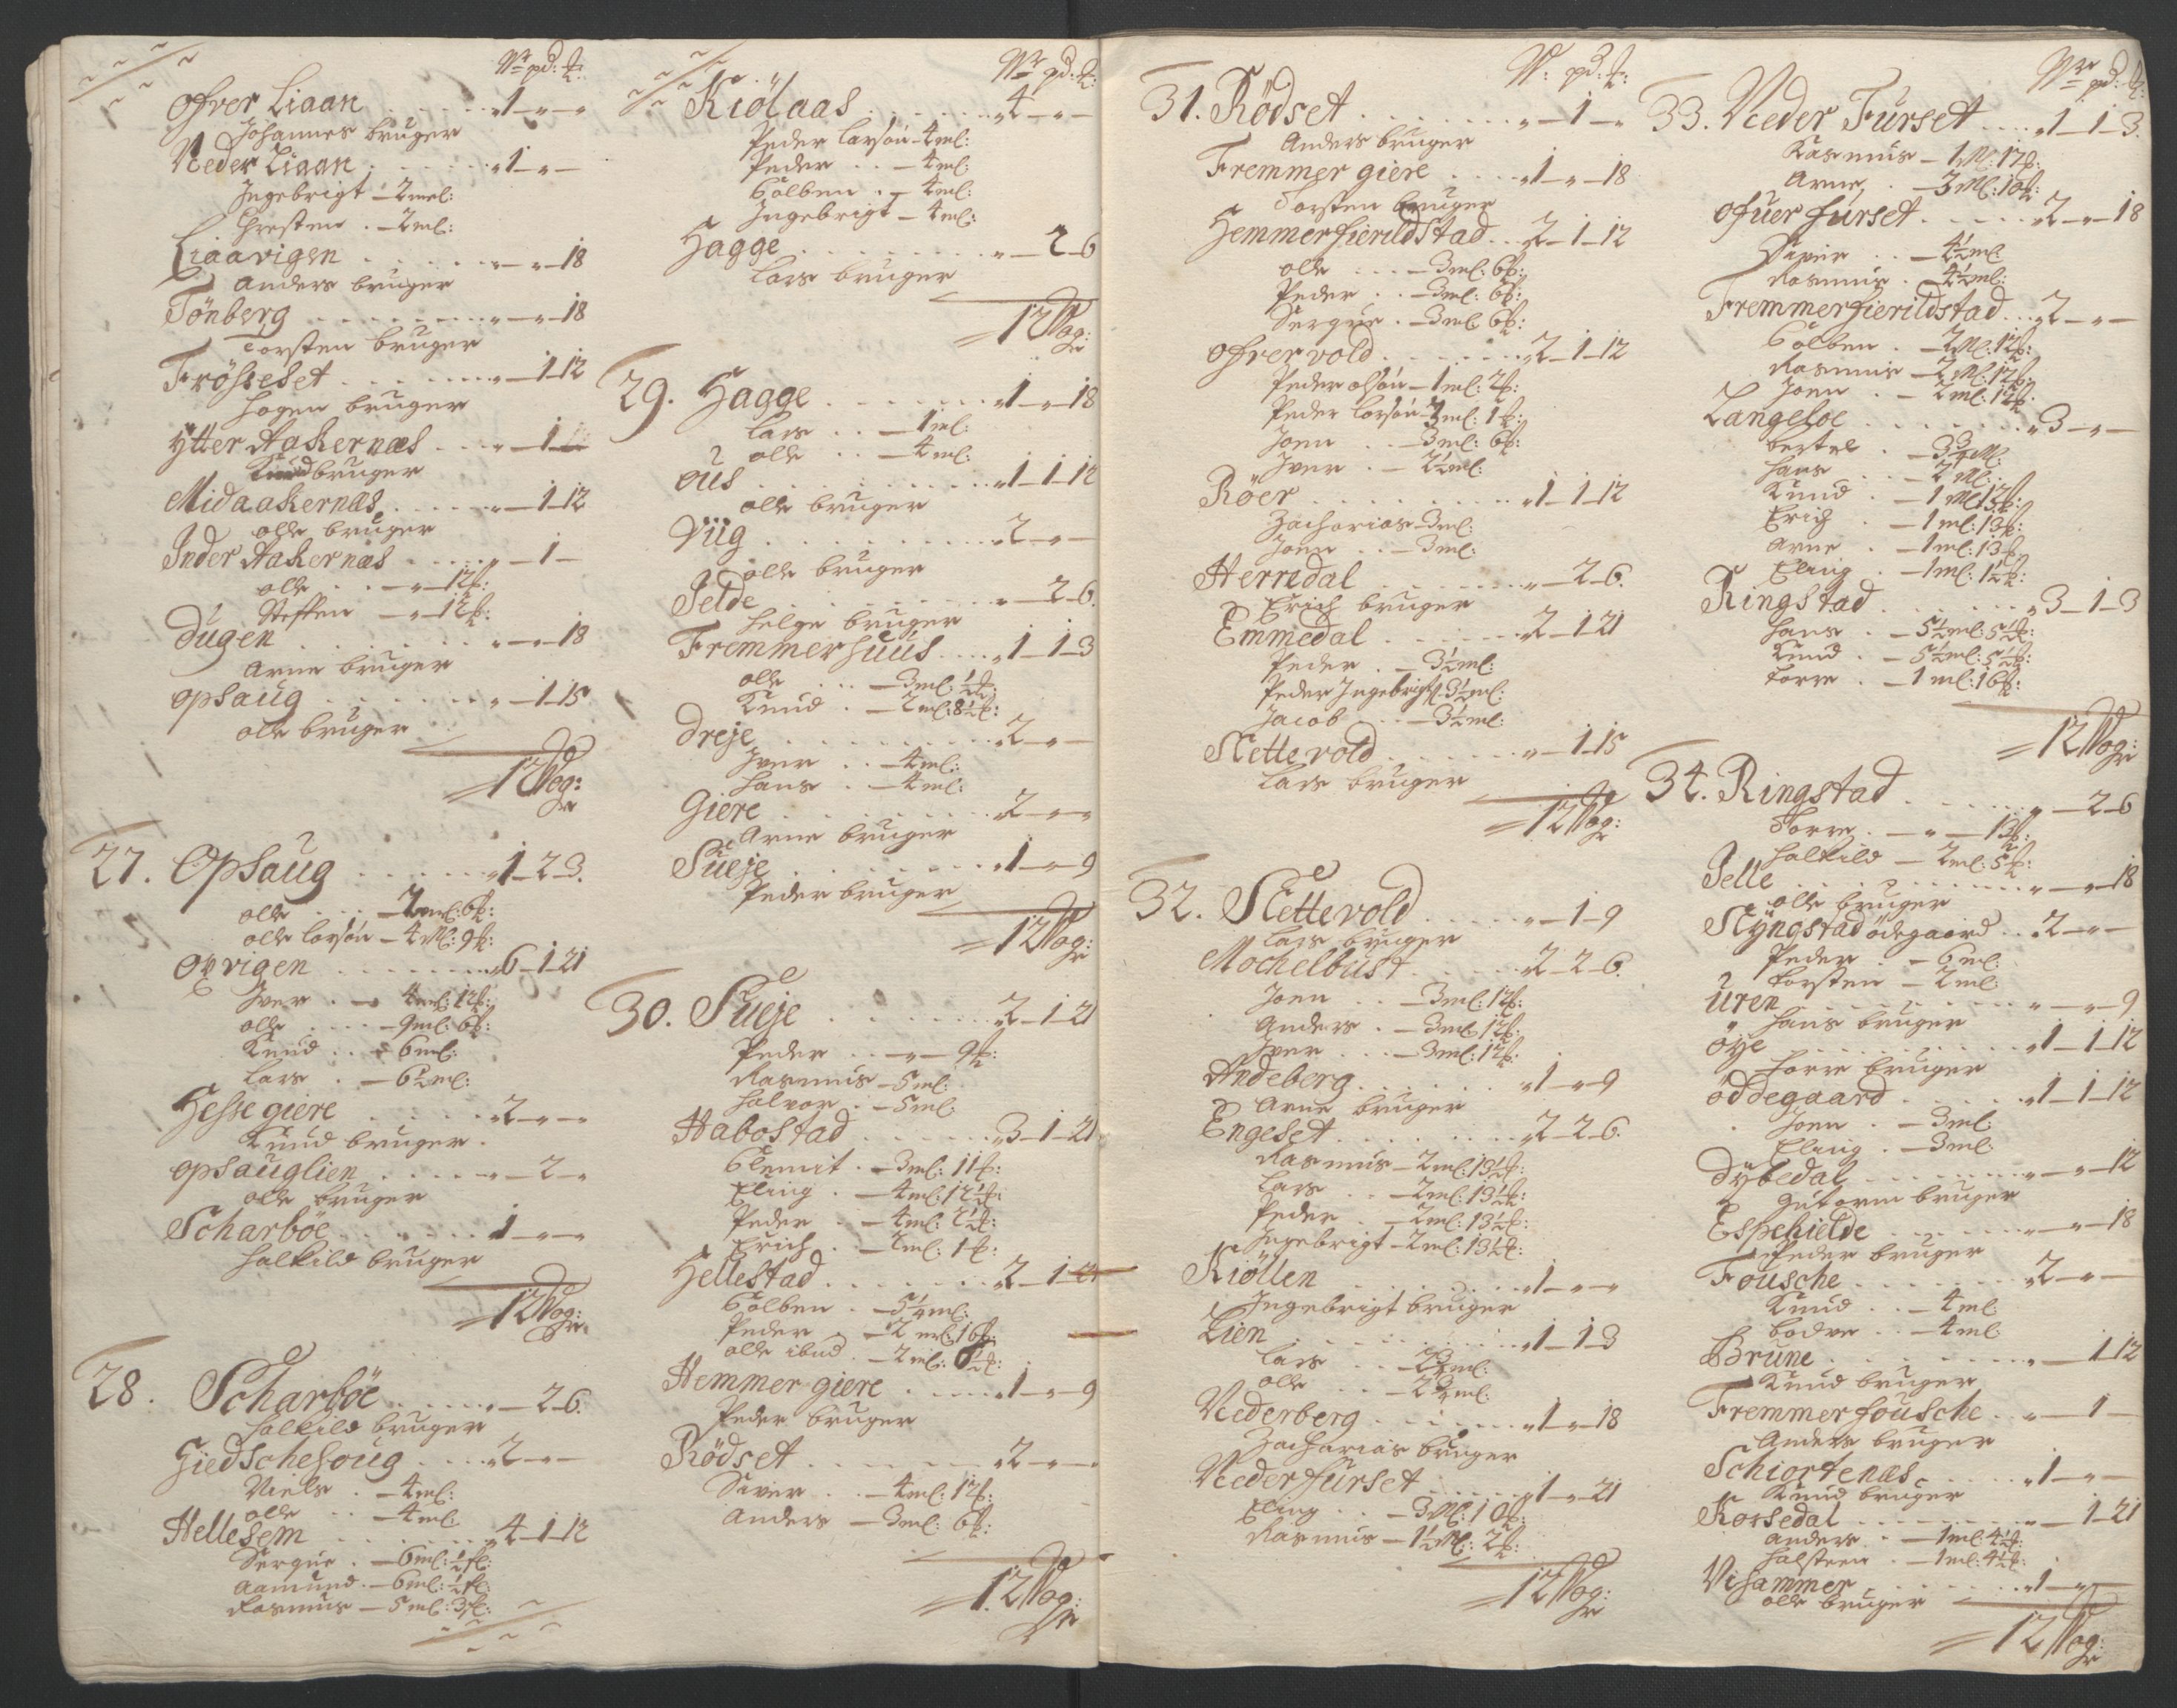 Wr pd: ℔:
Ofver Liaan . . . . . „1 „ „
Johannes bruger
Neder Liaan . . . . . „1 „ —
Ingebrigt — 2ml:
Chresten . — 2ml:
Liaavigen . . . . . „ — „ 18
Anders bruger
Tönberg . . . . . „ — „ 18
Torsten bruger
Frösteset . . . . . „ — 1 12
Hogen bruger
Ytter Aakernæs . . . „ — 1 —
Knud bruger
Midaakernæs . . . . „ — 1 12
olle bruger
Inder Aakernæs . . . . „ — 1 —
olle . . — „ — 12℔:
Steffen — „ — 12℔:
Dugen . . . . . „ — „ 18
Arne bruger
opsaug . . . . . „ — 1 15
olle bruger
12 Wog:
27. Opsaug . . . . . „1 — 2 — 3.
olle . . . — 2ml: 6℔:
olle larsøn — 4Ml: 9℔:
Ovrigen . . . . . „6 — 1 — 21
Iver . — 4ml: 12℔:
olle . . . — 9ml: 6℔:
Knud . . — 6ml:
Lars . — 6½ml:
Hesse giere . . . . „2 — „ — „
Knud bruger.
opsauglien . . . . „ — 2 — „
olle bruger
Scharböe . . . . . „1 — „ — „
Halkild bruger
12 Wog:
28. Scharböe . . . . . „ — 2 — 6.
Halkild bruger
Giedschehoug . . . „2 — „ —
Niels . — 4ml:
olle . . — 4ml:
Hellesem . . . . . „4 — 1 — 12
Sergue . — 6ml: ½℔:
Aamund . — 6ml: ½℔:
Rasmus — 5ml: 3℔:
Wr pd: ℔:
Kiölaas . . . . . „4 — „ —
Peder larsøn — 4ml:
Peder . . — 4ml:
Colben . — 4ml:
Ingebrigt — 4ml:
Hagge . . . . . „ — 2 — 6
Lars bruger
12 Wog:
29. Hagge . . . . . „1 — „ 18
Lars . . — 1ml:
olle . . — 4ml:
ous . . . . . „1 — 1 — 12
olle bruger
Viig . . . . . „2 — „ —
olle bruger
Jelde . . . . . „ — 2 — 6.
Helge bruger
Fremmerhuus . . . . „1 — 1 — 3
olle . . . — 3ml: ½℔:
Knud . — 2ml: 8½℔:
Dreje . . . . . „2 — „ —
Iver . . — 4ml:
Hans . — 4ml:
Giere . . . . . „2 — „ — „
Arne bruger
Sueje . . . . . „1 — „ — 9
Peder bruger
12 Wog:
30. Sueje . . . . . „2 — 1 — 21
Peder . . — „ — 9℔:
Rasmus — 5ml:
Halvor . — 5ml:
Habostad . . . . . „3 — 1 — 21
Clemit . — 3ml: 11℔:
Eling . — 4ml: 12½℔:
Peder . — 4ml: 2½℔:
Erich . . — 2ml: 1℔:
Hellestad . . . . . „2 — 1 — 21
Colben . — 5¼ml:
Peder . — 2ml: 16℔:
olle ibid. — 2ml: 6½℔:
Hemmer giere . . . . „1 — „ — 9
Peder bruger
Rödset . . . . . „2 — „ — „
Siver . . — 4ml: 12℔:
Anders — 3ml: 6℔:
12 Wog:
W: pd: ℔:
31. Rödset . . . . . „ — 1 — „
Anders bruger
Fremmer giere . . . . „1 — „ — 18
Torsten bruger
Hemmerfierildstad . . „2 — 1 — 12
olle . . . — 3ml: 6℔:
Peder . . — 3ml: 6℔:
Sergue . — 3ml: 6℔:
Ofver vold . . . . . „2 — 1 — 12
Peder olsøn — 1ml: 2℔:
Peder larsøn 3ml: 1℔:
Joen . . — 3ml: 6℔:
Iver . — 2½ml:
Röer . . . . . „1 — 1 — 12
Zacharias — 3ml:
Joen . . — 3ml:
Herredal . . . . . „ — 2 — 6.
Erich bruger
Emmedal . . . . . „2 — 1 21
Peder . — 3½ml:
Peder Ingebrigts 3½ml:
Jacob . . — 3½ml:
Slettevold . . . . . „ — 1 — 15
Lars bruger
12 Wog:
32. Slettevold . . . . . „ — 1 — 9
Lars bruger
Mochelbust . . . . . „2 — 2 — 6.
Joen . . — 3ml: 12℔:
Anders . — 3ml: 12℔:
Iver . . — 3ml: 12℔:
Andeberg . . . . . „1 — „ — 9
Arne bruger
Engeset . . . . . „2 — 2 — 6.
Rasmus — 2ml: 13½℔:
Lars . . — 2ml: 13½℔:
Peder . — 2ml: 13½℔:
Ingebrigt — 2ml: 13½℔:
Kiöllen . . . . . „1 — „ — „
Ingebrigt bruger
Lien . . . . . „1 — 1 — 3
Lars . . — 2¾ml:
olle . . — 2¾ml:
Nederberg . . . . . „1 — „ — 18
Zacharias bruger
Nederfurset . . . . . „1 — „ — 21
Eling . . — 3Ml: 10℔:
Rasmus — 1½Ml: 2℔:
12 Wog:
Wr pd: ℔:
33. Neder Furset . . . . „1 — 1 — 3.
Rasmus — 1Ml: 17℔:
Arne . — 3Ml: 10℔:
Ofuer furset . . . . . „2 — „ — 18
Siver . . — 4½ml
Rasmus . — 4½ml:
Fremmerfierildstad . . . „2 — „ —
Colben . — 2Ml: 12℔:
Rasmus — 2Ml: 12℔:
Joen . — 2ml: 12℔:
Langeloe . . . . . „3 — „ —
bertel . — 3¾Ml:
Hans . . — 2Ml:
Knud . — 1Ml 12℔:
Erich . — 1ml: 13℔:
Arne . — 1ml: 13℔:
Eling . — 1ml: 1½℔:
Ringstad . . . . . „3 — 1 — 3
Hans . — 5½ml: 5½℔:
Knud . — 5½ml: 5½℔:
torre . — 1ml: 16℔:
12 Wog:
34. Ringstad . . . . . „ — 2 — 6
Torre . — „ — 13℔:
Halkild — 2ml: 5℔:
Jelle . . . . . „ — „ — 18
olle bruger
Slÿngstad ödegaard . . „2 — „ —
Peder . — 6ml:
torsten — 2ml:
Uren . . . . . „ — „ — 9
Hans bruger
öye . . . . . „1 — 1 — 12
torre bruger
öddegaard . . . . . „1 — 1 — 12
Joen . — 3ml
Eling . — 3ml:
Dÿbedal . . . . . „ — „ — 12
Gutorm bruger
Espehielde . . . . . „ — „ — 18
Peder bruger
Fousche . . . . . „2 — „ —
Knud . . — 4ml
bodve . . — 4ml:
Brune . . . . . „ — 1 12
Knud bruger
Fremmer fousche . . „ — 1 —
Anders bruger
Schiortenæs . . . . . „1 — „ —
Knud bruger
Korsedal . . . . . „ — 1 — 21
Anders . — 1ml: 4½℔:
Halsteen . — 1ml: 4½℔:
Vihammer . . . . . „1 — „ —
olle bruger
12 Wog: